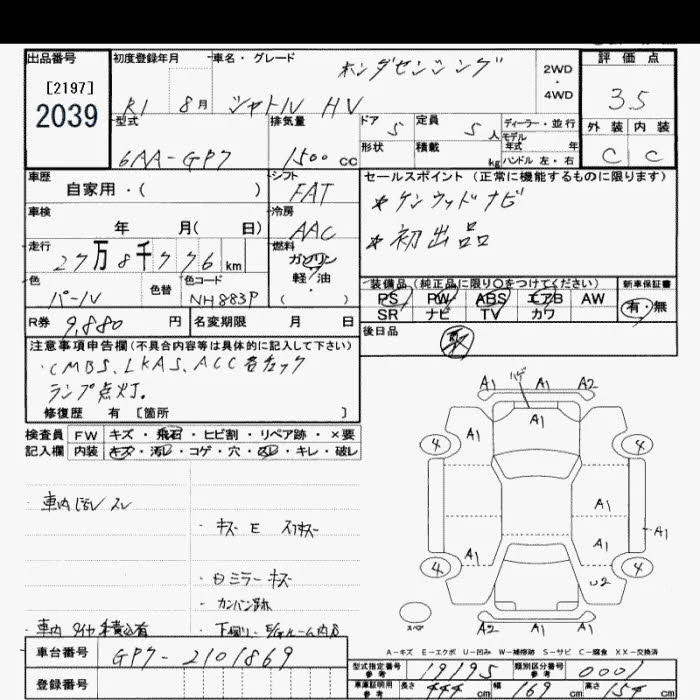 出品番号 初度登録年月 車名・グレード ホンダセンシング 2WD・4WD 評価点
[2197]
2039 R1 8月 シャトル HV 3.5
型式 排気量 ドア 5 定員 5人 ディーラー・並行 外装 内装
モデル年式 年
6AA-GP7 1500 cc 形状 積載 kg ハンドル 左・右 C C
車歴 シフト セールスポイント (正常に機能するものに限ります)
自家用・( ) FAT *ケンウッドナビ
車検 冷房
年 月( 日) AAC *初出品
走行 燃料
27万8千776 km ガソリン
軽・油
・( )
色 色替 色コード 装備品 (純正品に限り〇をつけてください) 新車保証書
パール NH883P PS PW ABS エアB AW 有・無
SR ナビ TV カワ
R券 9,880 円 名変期限 月 日 後日品 取
注意事項申告欄(不具合内容等は具体的に記入して下さい)
・CMBS、LKAS、ACC各チェック
ランプ点灯。
修復歴 有 [箇所 ]
検査員 FW キズ・飛石・ヒビ割・リペア跡・×要
記入欄 内装 キズ・汚レ・コゲ・穴・スレ・キレ・破レ
・キズ E スリキズ
・ミラーキズ
・カンバン跡
A1 A1 A2
ハゲ
A1
4 A1 4
A1
A1
A1 A1
4 U2 4
スペア A2 A1 A1
A-キズ E-エクボ U-凹み W-補修跡 S-サビ C-腐食 XX-交換済
車台番号 GP7-2101869 型式指定番号 参考 19195 類別区分番号 参考 0001
登録番号 車庫証明用 参考 長さ 444 cm 幅 169 cm 高さ 154 cm